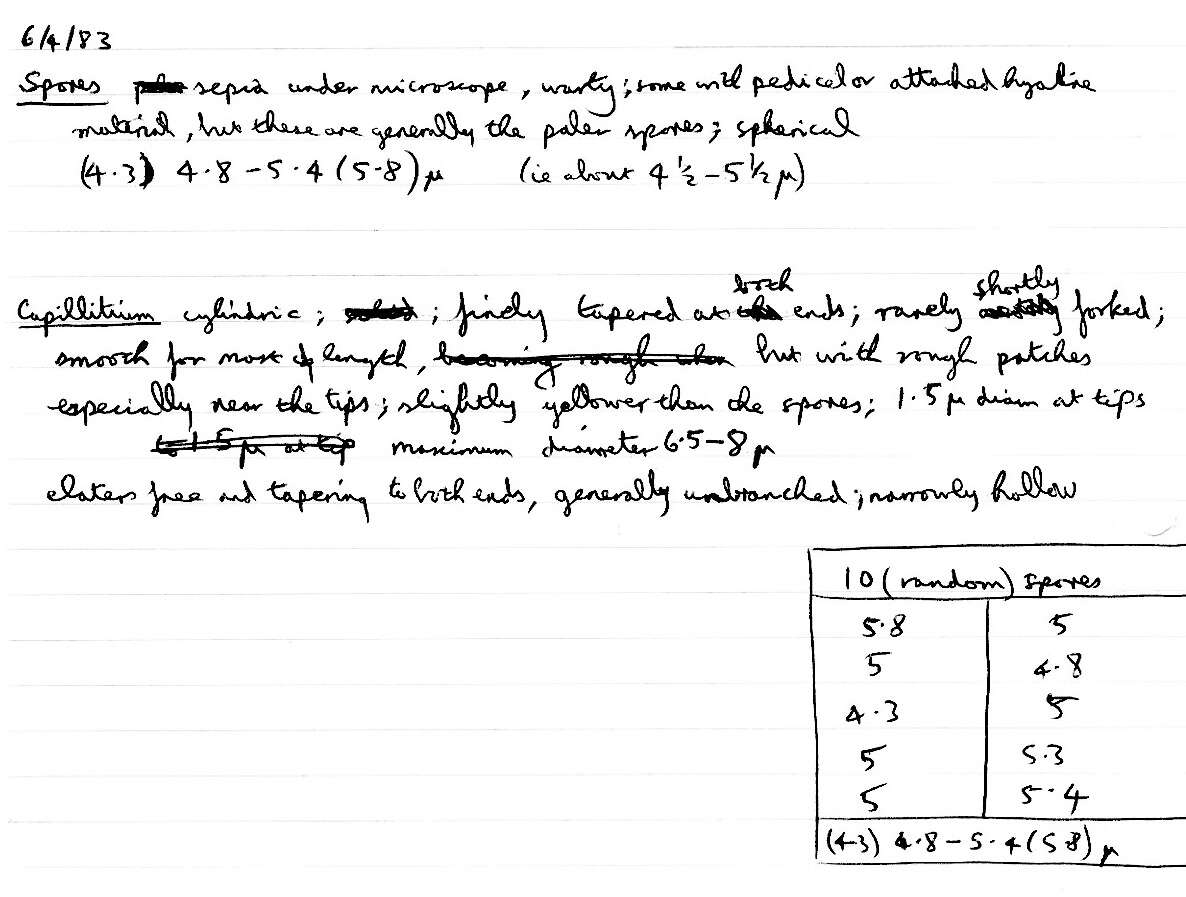 6/4/83
Spores sepia under microscope, warty; some with pedicel or attached hyaline
material, but these are generally the paler spores; spherical
(4.3) 4.8 – 5.4 (5.8) μ (ie about 4½ – 5½ μ)
both shortly
Capillitium cylindric; ; finely tapered at ends; rarely forked;
smooth for most of length, becoming rough when but with rough patches
especially near the tips; slightly yellower than the spores; 1.5 μ diam at tips
to 1.5 μ at tip maximum diameter 6.5 – 8 μ
elaters free and tapering to both ends, generally unbranched; narrowly hollow
10 (random) spores
5.8 5
5 4.8
4.3 5
5 5.3
5 5.4
(4.3) 4.8 – 5.4 (5.8) μ